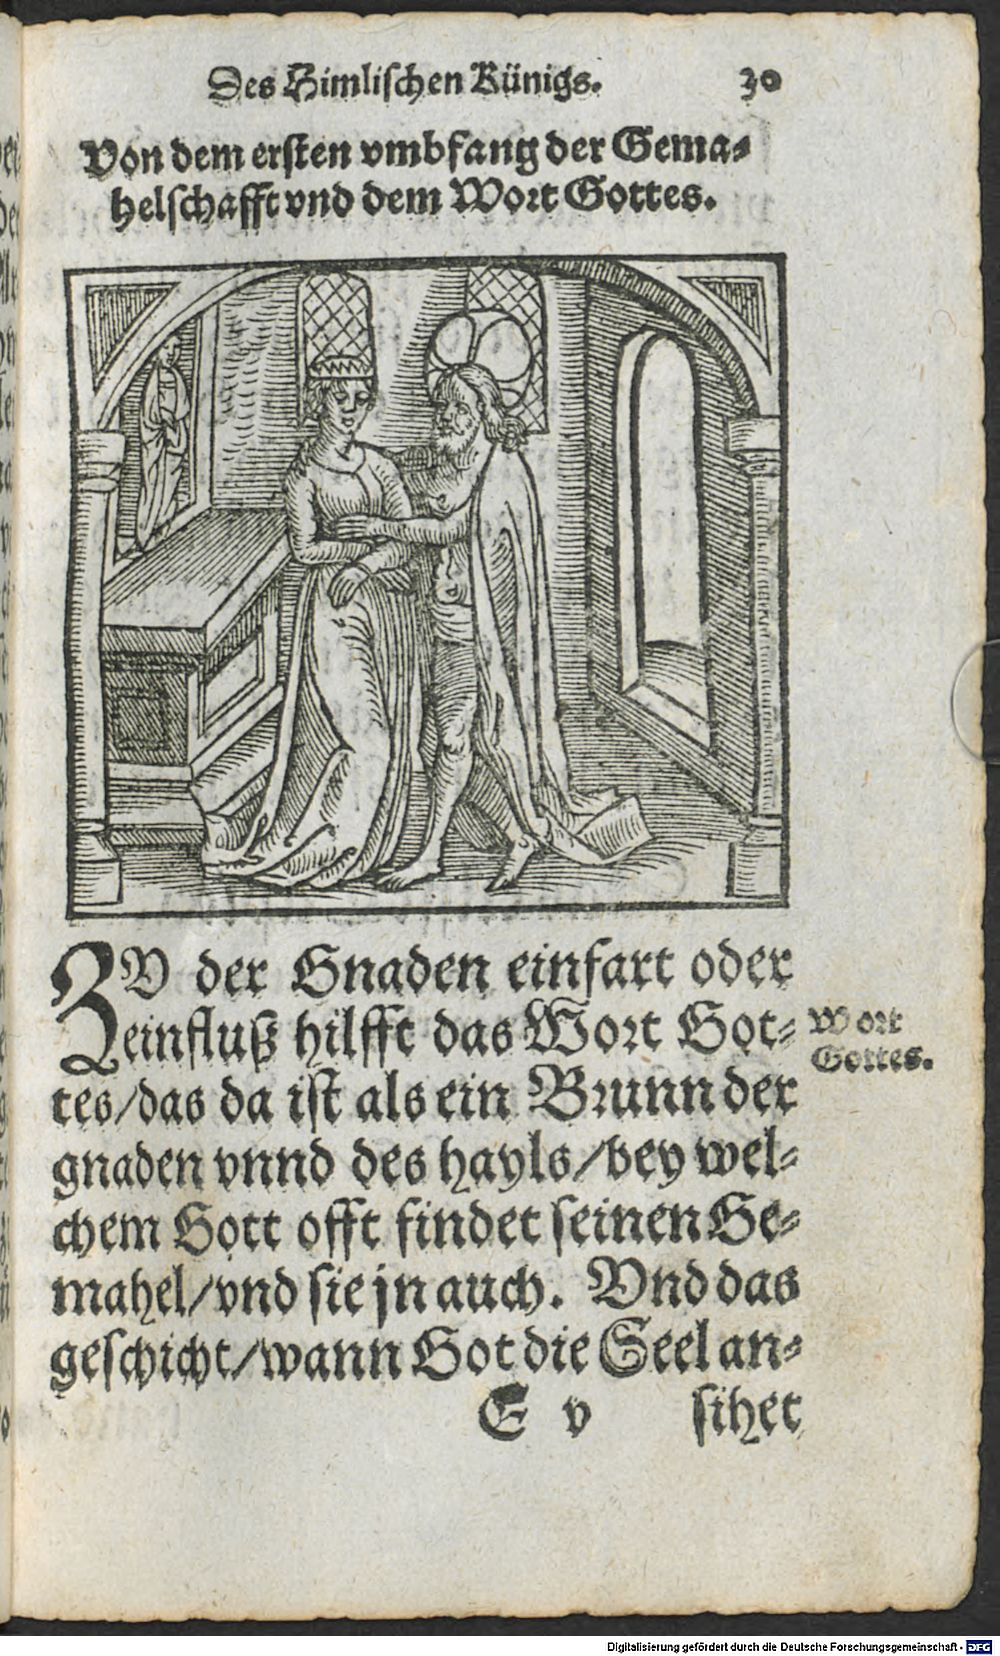 Des Himlischen Künigs. 30
Von dem ersten vmbfang der Gema⸗
helschafft vnd dem Wort Gottes.
ZV der Gnaden einfart oder
einfluß hilfft das Wort Got⸗
Wort
Gottes.
tes/das da ist als ein Brunn der
gnaden vnnd des hayls/bey wel⸗
chem Gott offt findet seinen Ge⸗
mahel/vnd sie jn auch. Vnd das
geschicht/wann Got die Seel an⸗
E v sihet
Digitalisierung gefördert durch die Deutsche Forschungsgemeinschaft - DFG